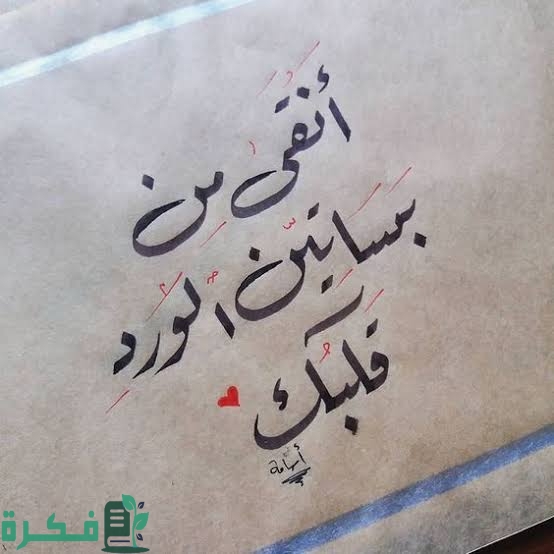 أَنْقَىٰ مِن
بَسَاتِين الْوَرْدِ
قَلبُك
أسامة
فكرة